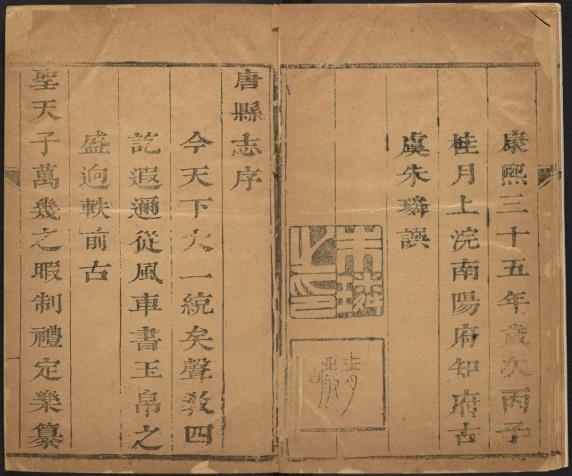 康熙三十五年歲次丙子
桂月上浣南陽府知府古
虞朱璘譔
唐縣志序
今天下大一統矣聲敎四
訖遐邇從風車書玉帛之
盛逈軼前古
聖天子萬幾之暇制禮定樂纂